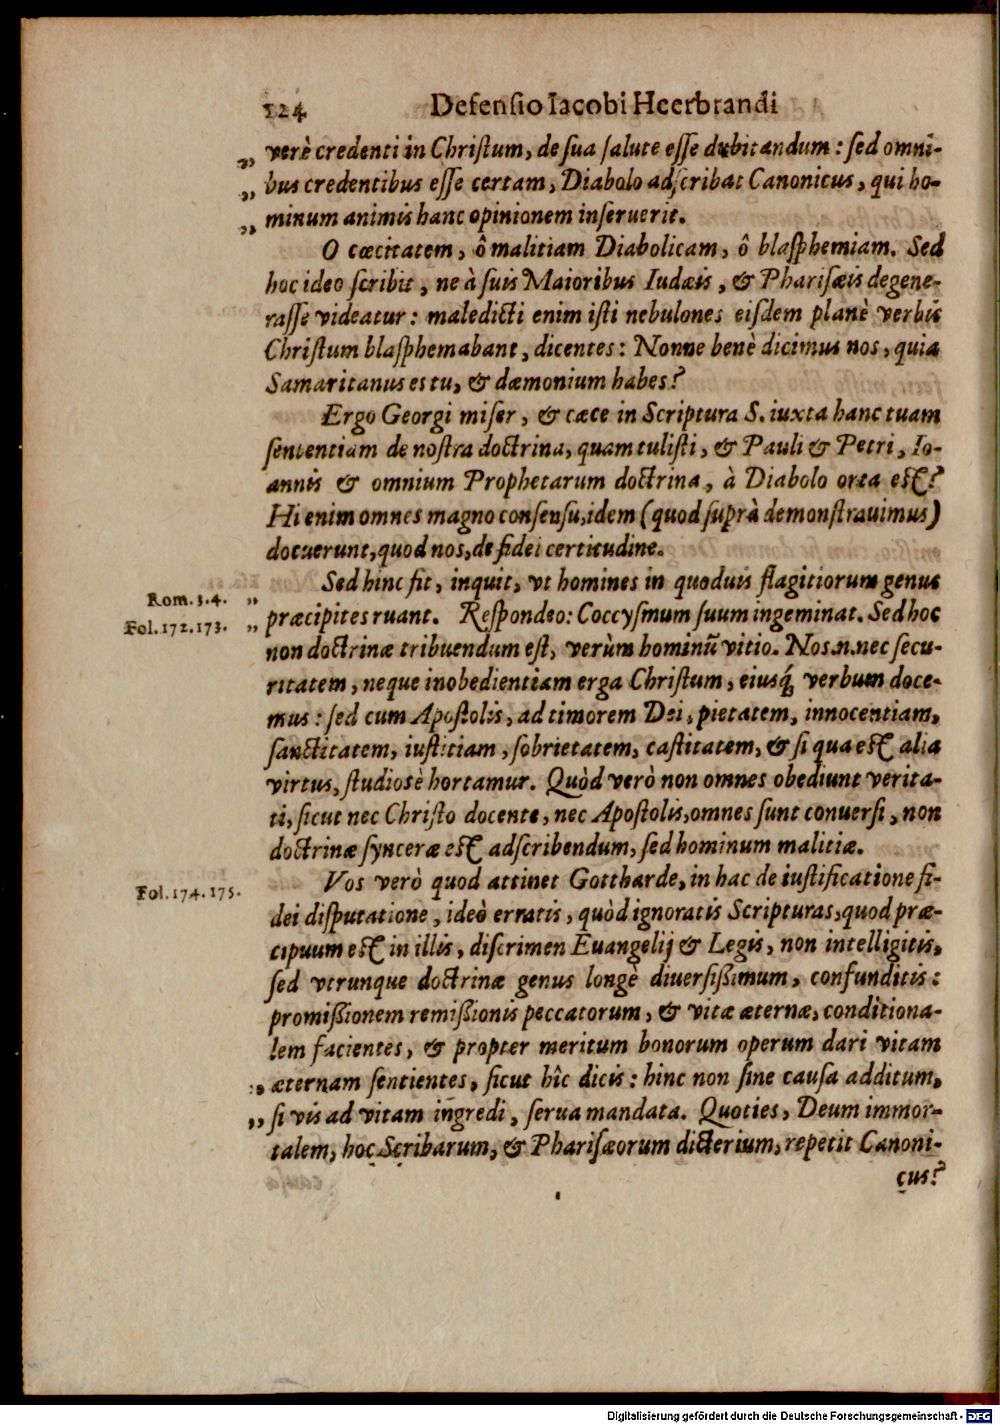 124 Defensio Iacobi Heerbrandi
„ verè credenti in Chriſtum, de ſua ſalute eſſe dubitandum: ſed omni-
„ bus credentibus eſſe certam, Diabolo adſcribat Canonicus, qui ho-
„ minum animis hanc opinionem inſeruerit.
O cæcitatem, ô malitiam Diabolicam, ô blaſphemiam. Sed
hoc ideo ſcribit, ne à ſuis Maioribus Iudæis, & Phariſæis degene-
raſſe videatur: maledicti enim iſti nebulones eiſdem planè verbis
Chriſtum blaſphemabant, dicentes: Nonne benè dicimus nos, quia
Samaritanus es tu, & dæmonium habes?
Ergo Georgi miſer, & cæce in Scriptura S. iuxta hanc tuam
ſententiam de noſtra doctrina, quam tuliſti, & Pauli & Petri, Io-
annis & omnium Prophetarum doctrina, à Diabolo orta eſt?
Hi enim omnes magno conſenſu, idem (quod ſuprà demonſtrauimus)
docuerunt, quod nos, de fidei certitudine.
Sed hinc fit, inquit, vt homines in quoduis flagitiorum genus
Rom. 3.4. „ præcipites ruant. Reſpondeo: Coccyſmum ſuum ingeminat. Sed hoc
Fol. 172. 173. „ non doctrinæ tribuendum eſt, verùm hominū vitio. Nos .n. nec ſecu-
ritatem, neque inobedientiam erga Chriſtum, eiusq́; verbum doce-
mus: ſed cum Apoſtolis, ad timorem Dei, pietatem, innocentiam,
ſanctitatem, iuſtitiam, ſobrietatem, caſtitatem, & ſi qua eſt alia
virtus, ſtudioſè hortamur. Quòd verò non omnes obediunt verita-
ti, ſicut nec Chriſto docente, nec Apoſtolis, omnes ſunt conuerſi, non
doctrinæ ſynceræ eſt adſcribendum, ſed hominum malitiæ.
Fol. 174. 175. Vos verò quod attinet Gottharde, in hac de iuſtificatione fi-
dei diſputatione, ideò erratis, quòd ignoratis Scripturas, quod præ-
cipuum eſt in illis, diſcrimen Euangelij & Legis, non intelligitis,
ſed vtrunque doctrinæ genus longè diuerſißimum, confunditis:
promißionem remißionis peccatorum, & vitæ æternæ, conditiona-
lem facientes, & propter meritum bonorum operum dari vitam
„ æternam ſentientes, ſicut hîc dicis: hinc non ſine cauſa additum,
„ ſi vis ad vitam ingredi, ſerua mandata. Quoties, Deum immor-
talem, hoc Scribarum, & Phariſæorum dicterium, repetit Canoni-
cus?
Digitalisierung gefördert durch die Deutsche Forschungsgemeinschaft - DFG